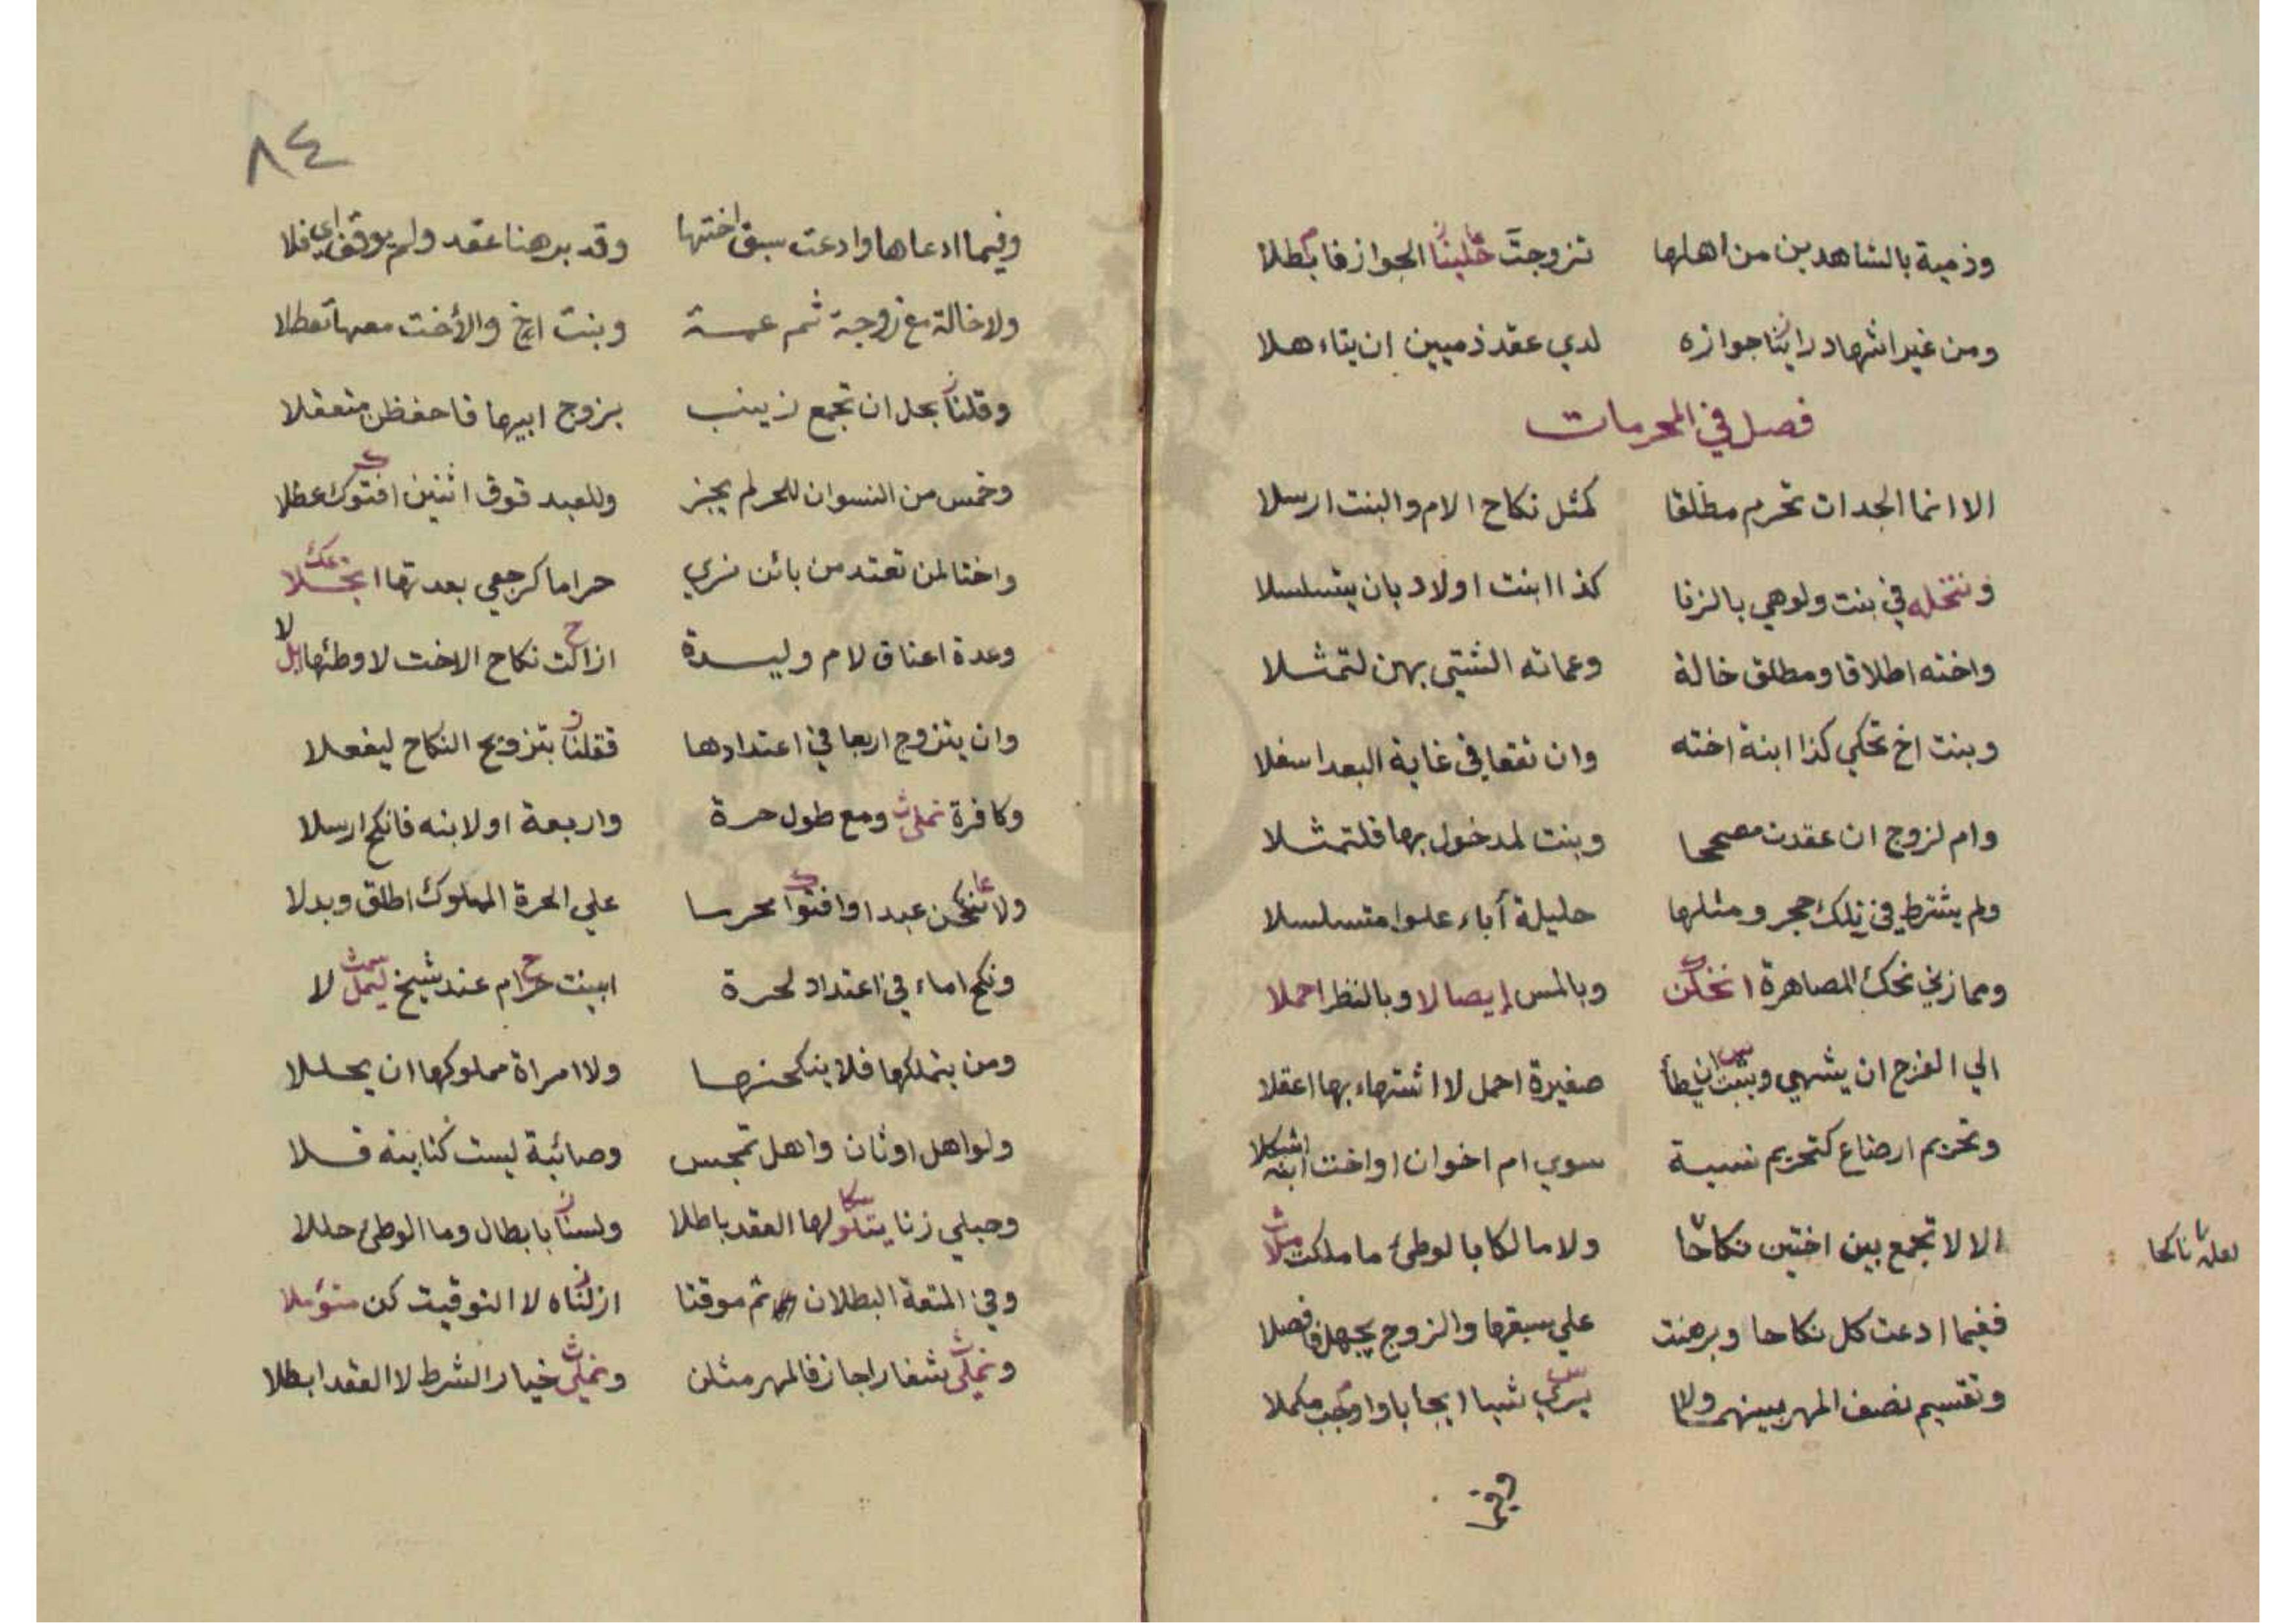 وذمية بالشاهدين من اهلها تزوجت خلينا الجواز فابطلا
ومن غير اشهاد راينا جوازه لدي عقد ذميين ان يتاهلا
فصل في المحرمات
الا انما الجدات تحرم مطلقا كمثل نكاح الام والبنت ارسلا
وننخله في بنت ولو هي بالزنا كذا ابنت اولاد بان يتسلسلا
واخته اطلاقا ومطلق خالة وعماته الشتي بهن لتمثلا
وبنت اخ تحكي كذا ابنة اخته وان تقعا في غاية البعد اسفلا
وام لزوج ان عقدت مصححا وبنت لمدخول بها فلتمثلا
ولم يشترط في تلك حجر ومثلها حليلة آباء علوا متسلسلا
ومما زني نحك المصاهرة انخلن وبالمس إيصالا وبالنظر احملا
الي الفرج ان يشهي وبنت ان يطأ صغيرة احمل لا اشتهاء بها اعقلا
وتحريم ارضاع كتحريم نسبة سوي ام اخوان او اخت ابنه اشكلا
الا لا تجمع بين اختين نكاحا ولا مالكا بالوطئ ما ملكت ملا
لعله ناكحا
ففيما ادعت كل نكاحا وبرهنت علي سبقها والزوج يجهل فافصلا
وتقسيم نصف المهر بينهما ولا يري شيا ايجابا واوجب مكملا
وفيما
٨٤
وفيما ادعاها وادعت سبق اختها وقد برهنا عقد ولم يوقف اي فلا
ولا خالة مع زوجة ثم عمة وبنت اخ والأخت معها تعطلا
وقلنا بحل ان تجمع زينب بزوج ابيها فاحفظن متعقلا
وخمس من النسوان للحر لم يجز وللعبد فوق اثنين افتوك عطلا
واختا لمن تعتد من بائن نري حراما كرجعي بعدتها انجلا
وعدة اعتاق لام وليدة ازالت نكاح الاخت لا وطئها بل لا
وان يتزوج اربعا في اعتدادها فقلنا بتزويج النكاح ليفعلا
وكافرة نملي ومع طول حرة واربعة اولا بنه فانكح ارسلا
ولا تنكحن عبدا وافتوا محرسا علي الحرة المملوك اطلق وبدلا
ونكح اماء في اعتداد لحرة ابينت حرام عند شيخ ليمل لا
ومن يتملكها فلا ينكحنها ولا امراة مملوكها ان يحللا
ولو اهل اوثان واهل تمجس وصائبة ليست كتابية فلا
وحبلي زنا يتلو لها العقد باطلا ولسنا بابطال وما الوطئ حللا
وفي المتعة البطلان ثم موقتا ازلناه لا التوقيت كن متؤملا
ونملي شغارا جاز فالمهر مثلن ونملي خيار الشرط لا العقد ابطلا